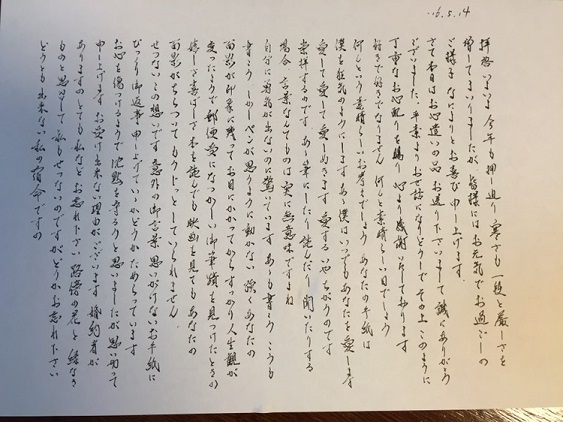 16.5.14
拝啓 いよいよ今年も押し迫り 寒さも一段と厳しさを
増してまいりましたが 皆様にはお元気でお過ごしの
ご様子 なによりとお喜び申し上げます。
さて本日はお心遣いの品お送り下さいまして 誠にありがとう
ございました。平素よりお世話になりどうしで その上このように
丁重なお心配りを賜り 心より感謝いたしております
好きで好きでなりません 何んと素晴しい日でしょう
何んという素晴らしいお考えでしょう あなたの手紙は
僕を狂気のようにします あゝ僕はいつでもあなたを愛します
愛して愛して愛しぬきます 愛する
崇拝するかです あゝ筆にしたり読んだり聞いたりする
場合 言葉なんてものは実に無意味ですよね
自分に勇気が出ないのに驚いています あゝも書こう こうも
書こう しかしペンが思うように動かない 強くあなたの
面影が印象に残って お目にかかってからすっかり人生観が
変ったようで 郵便受になつかしい御筆蹟を見つけたときの
嬉しさ 喜ばしさ 本を読んでも映画を見てもあなたの
面影がちらついてもうじっとしていられません。
せつないこの想いです 意外の御言葉 思いがけないお手紙に
びっくり 御返事申し上げていいかどうかためらっています
お心を傷つけるようで沈黙を守ろうと思いましたが 思い切って
申し上げます お受け出来ない理由がございます 婚約者が
ありますのとても私などお忘れ下さい 路傍の花と 結なき
ものと思召して 私もせつないのですが どうかお忘れ下さい
どうにも出来ない私の宿命ですの